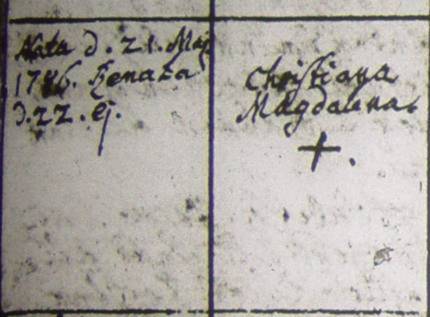 Nata d. 21. Maj
1786. Renata
d. 22. ej.
Christiana
Magdalena.
+.